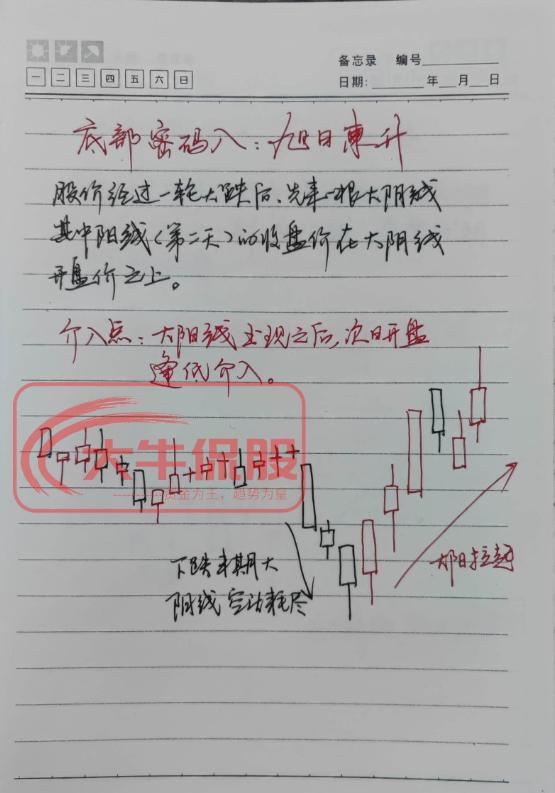 备忘录 编号
一 二 三 四 五 六 日
日期: 年 月 日
底部密码八:旭日东升
股价经过一轮大跌后、先来一根大阴线
其中阳线(第二天)的收盘价在大阴线
开盘价之上。
介入点:大阳线出现之后,次日开盘
逢低介入。
大牛保股
资金为王,趋势为量
下跌末期大
阴线空动耗尽
大阳拉起